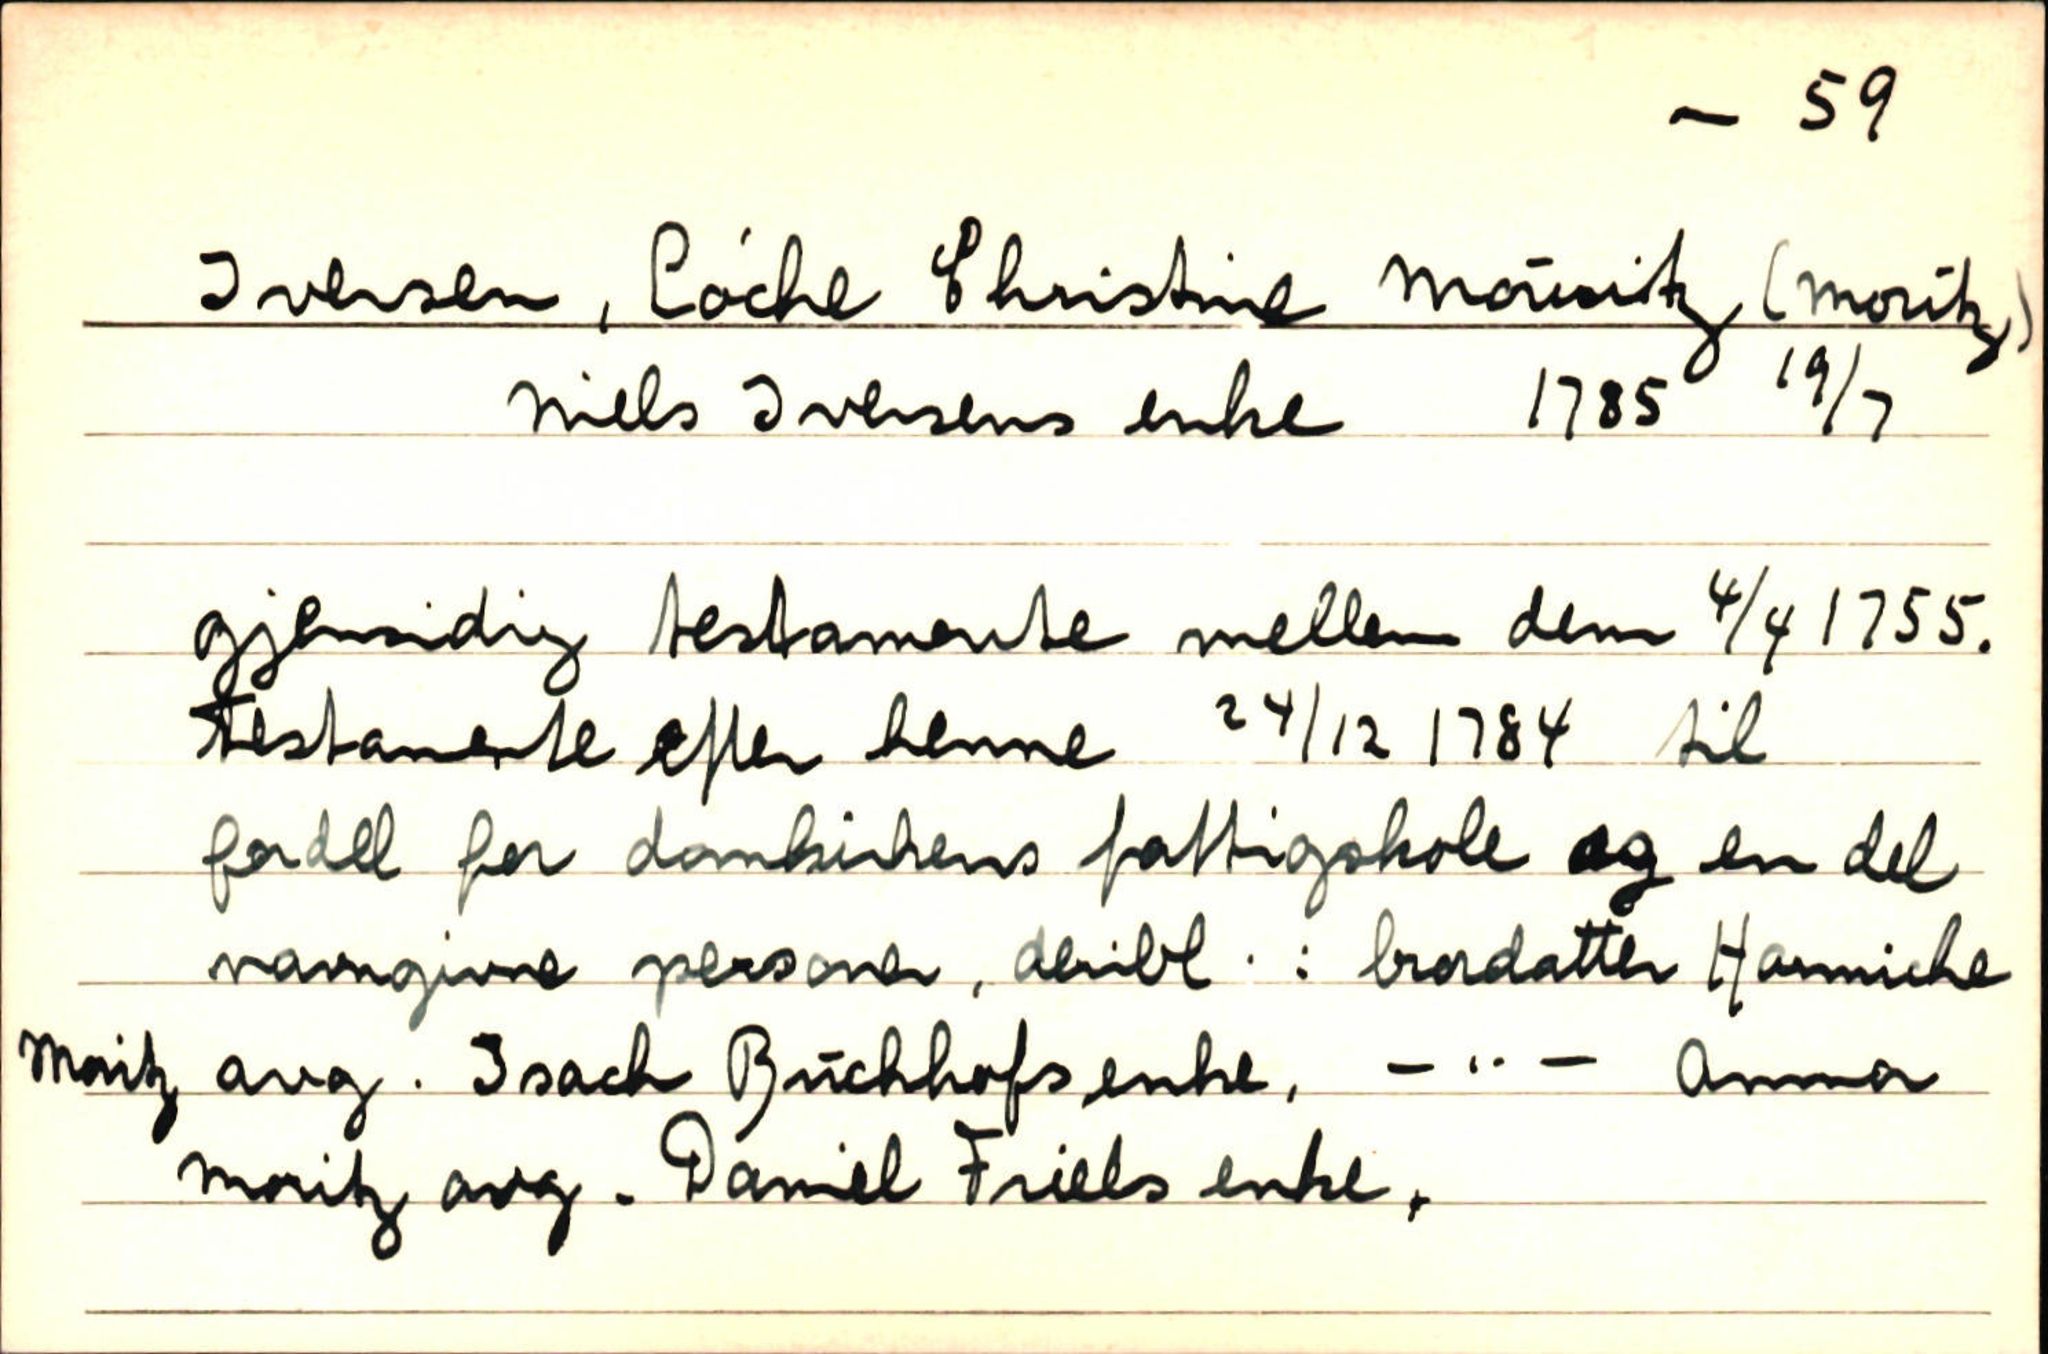 — 59
Iversen, Cóche Christine Mōrwitz (Moritz)
Niels Iversens enke 1785 19/7
gjensidig testamente mellem dem 4/4 1755.
Testamente efter henne 24/12 1784 til
fordel for domkirkens fattigskole og en del
navngivne personer, deribl. : brordatter Harmiche
Moritz avg. Isach Buchhofs enke, — " — Anna
Moritz avg. Daniel Friels enke.